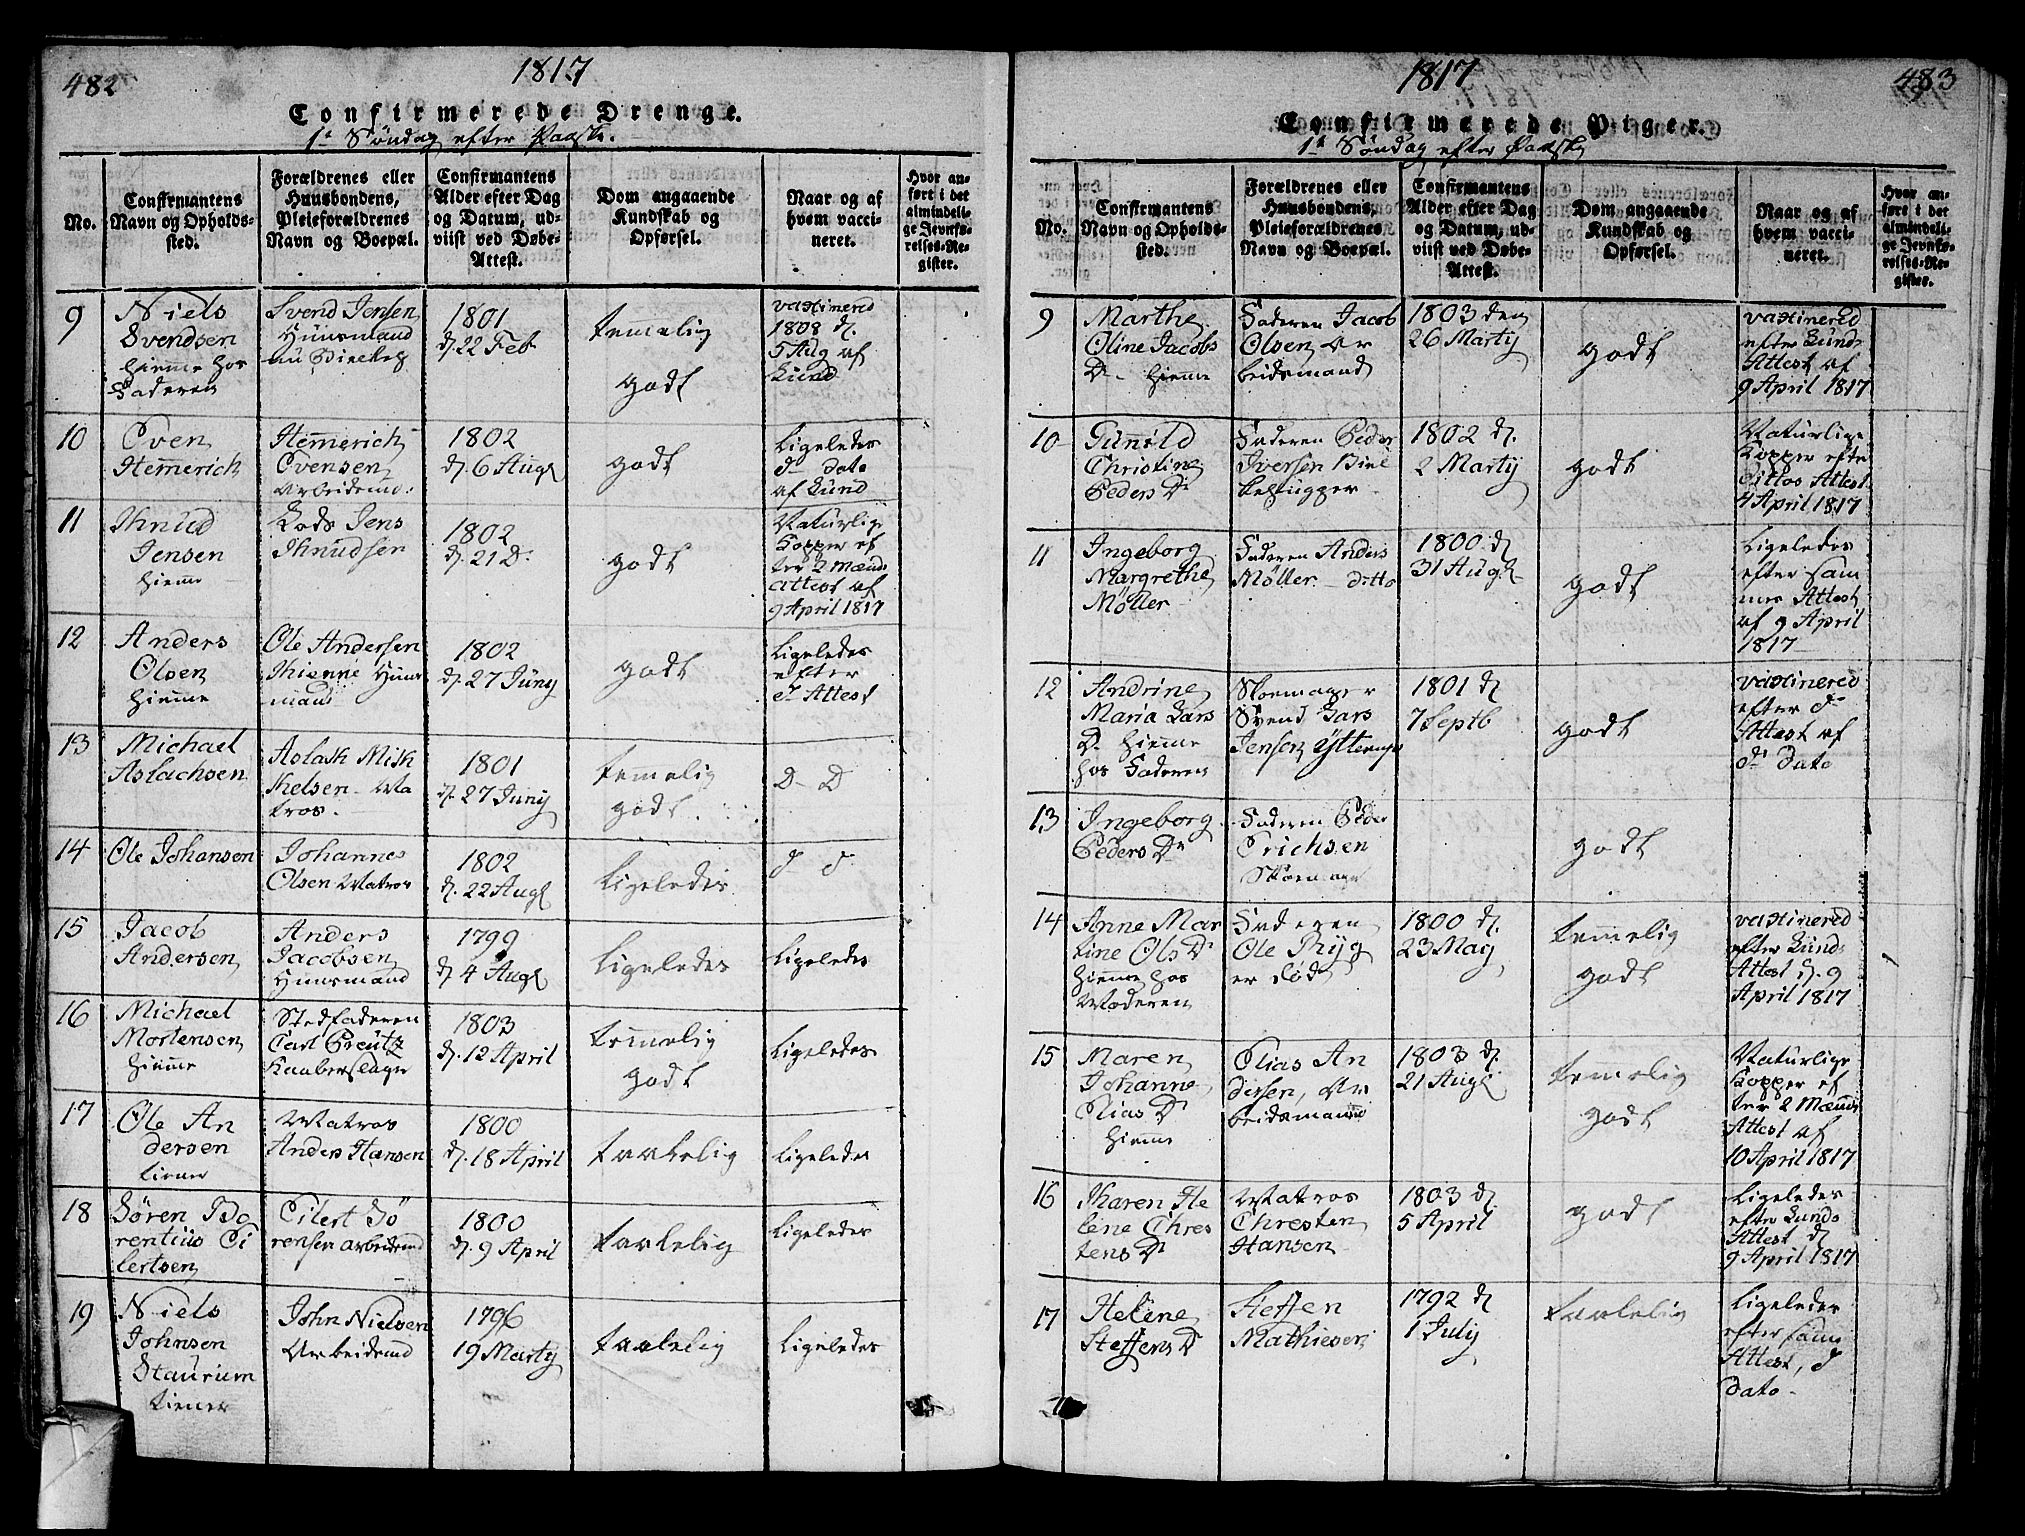 482
1817
Confirmerede Drenge.
1e Søndag efter Paaske.
No.
Confirmantens
Navn og Opholds-
sted.
Forældrenes eller
Huusbondens,
Pleieforældrenes
Navn og Boepæl.
Confirmantens
Alder efter Dag
og Datum, ud-
viist ved Døbe-
Attest.
Dom angaaende
Kundskab og
Opførsel.
Naar og af
hvem vacci-
neret.
Hvor an-
ført i det
almindeli-
ge Jevnfø-
relses-Re-
gister.
9
Niels
Svendsen
hiemme hos
Faderen
Svend Jensen
Huusmand
1801
d. 22 Feb
temmelig
godt
vaxinered
1808 d.
5 Aug af
Lund
10
Even
Hemmerich
Hemmerich
Evensen
Arbeidsmd:
1802
d. 6 Aug
godt
Ligeledes
do dato
af Lund
11
Knud
Jensen
hiemme
Lods Jens
Knudsen
1802
d. 21 D.
godt
Naturlige
Kopper ef
ter 2 Mænds
Attest af
9 April 1817
12
Anders
Olsen
hiemme
Ole Andersen
Huus
mand
1802
d. 27 Juny
godt
Ligeledes
efter
do Attest
13
Michael
Aslachsen
Aslak Mik
kelsen Ma
tros.
1801
d. 27 Juny
temmelig
godt
D- D
14
Ole Johansen
Johannes
Olsen Matros
1802
d. 22 Aug
Ligeledes
d d
15
Jacob
Andersen
Anders
Jacobsen
Huusmand
1799
d. 4 Aug
Ligeledes
Ligeledes
16
Michael
Mortensen
hiemme
Stedfaderen
Carl Creutz
Kaaberslager
1803
d. 12 April
temmelig
godt
Ligeledes
17
Ole An
dersen
tiener
Matros
Anders Hansen
1800
d. 18 April
taalelig
Ligeledes
18
Søren Lo
rentius Ei
lertsen
Eilert Sø
rensen Arbeidsmd
1800
d. 9 April
taalelig
Ligeledes
19
Niels
Johnsen
Staurum
tiener
John Nielsen
Arbeidsmd
1796
19 Marty
taalelig
Ligeledes
1817
483
Confirmerede Piger.
1e Søndag efter Paaske
No.
Confirmantens
Navn og Opholds-
sted.
Forældrenes eller
Huusbondens,
Pleieforældrenes
Navn og Boepæl.
Confirmantens
Alder efter Dag
og Datum, ud-
viist ved Døbe-
Attest.
Dom angaaende
Kundskab og
Opførsel.
Naar og af
hvem vacci-
neret.
Hvor an-
ført i det
almindeli-
ge Jevnfø-
relses-Re-
gister.
9
Marthe
Oline Jacobs
Dr hiemme
Faderen Jacob
Olsen Ar
beidsmand
1803 den
26 Marty
godt
vaxinered
efter Lunds
Attest af
9 April 1817
10
Gunild
Christine
Peders Dr
Faderen Peder
Iversen
1802 d.
2 Marty
godt
Naturlige
Kopper efter
dittos Attest
4 April 1817
11
Ingeborg
Margrethe
Møller
Faderen Anders
Møller ditto
1800 d
31 Aug
godt
Ligeledes
efter sam
mes Attest
af 9 April
1817
12
Andrine
Maria Lars
Dr hiemme
hos Faderen
Skoemager
Svend Lars
Jensen
1801 d
7 Septb
godt
vaxinered
efter do
Attest af
do dato
13
Ingeborg
Peders Dr
Faderen Peder
Erichsen
Skoemager
godt
14
Anne Mar
tine Ols Dr
hiemme hos
Moderen
Faderen
Ole Ryg
er død
1800 d.
23 May
temmelig
godt
vaxinered
efter Lunds
Attest d. 9
April 1817
15
Maren
Johanne
Elias Dr
hiemme
Elias An
dersen, Ar
beidsmand
1803 d.
21 Aug
temmelig
godt
Naturlige
Kopper ef
ter 2 Mænds
Attest af
10 April 1817
16
Karen He
lene Chres
tens Dr
Matros
Chresten
Hansen
1803 d.
5 April
godt
Ligeledes
efter Lunds
Attest d
9 April 1817
17
Helene
Steffens Dr
Steffen
Mathiesen
1792 d
1 July
taalelig
Ligeledes
efter samme
Attest, d
dato